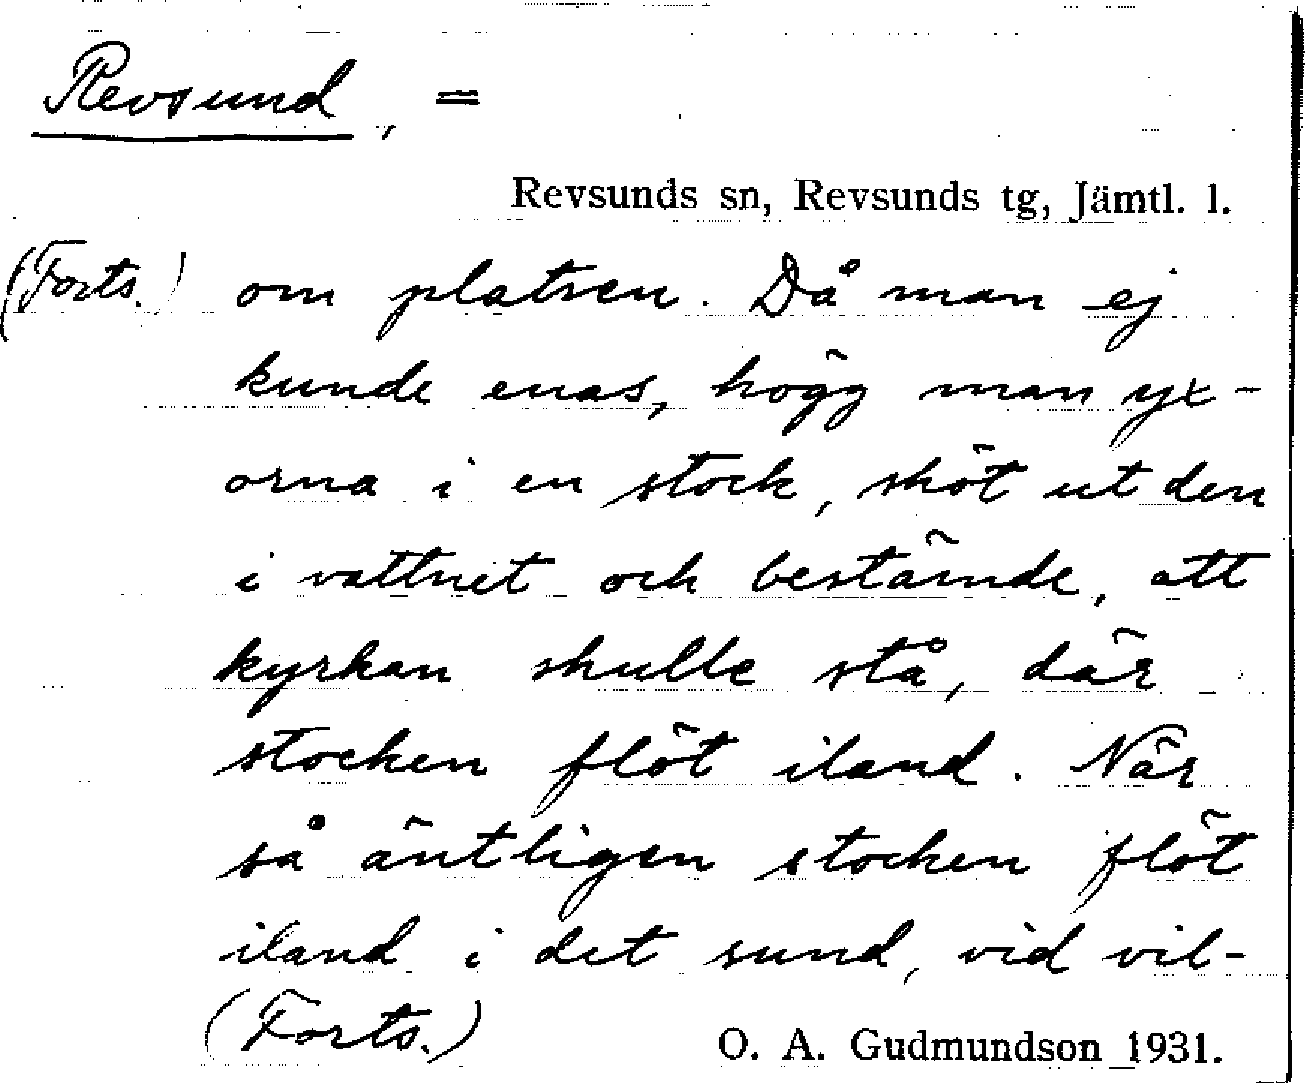 Revsund, =
Revsunds sn, Revsunds tg, Jämtl. l.
(Forts.) om platsen. Då man ej
kunde enas, högg man yx-
orna i en stock, sköt ut den
i vattnet och bestämde, att
kyrkan skulle stå, där
stocken flöt iland. När
så äntligen stocken flöt
iland i det sund, vid vil-
(Forts.)
O. A. Gudmundson 1931.